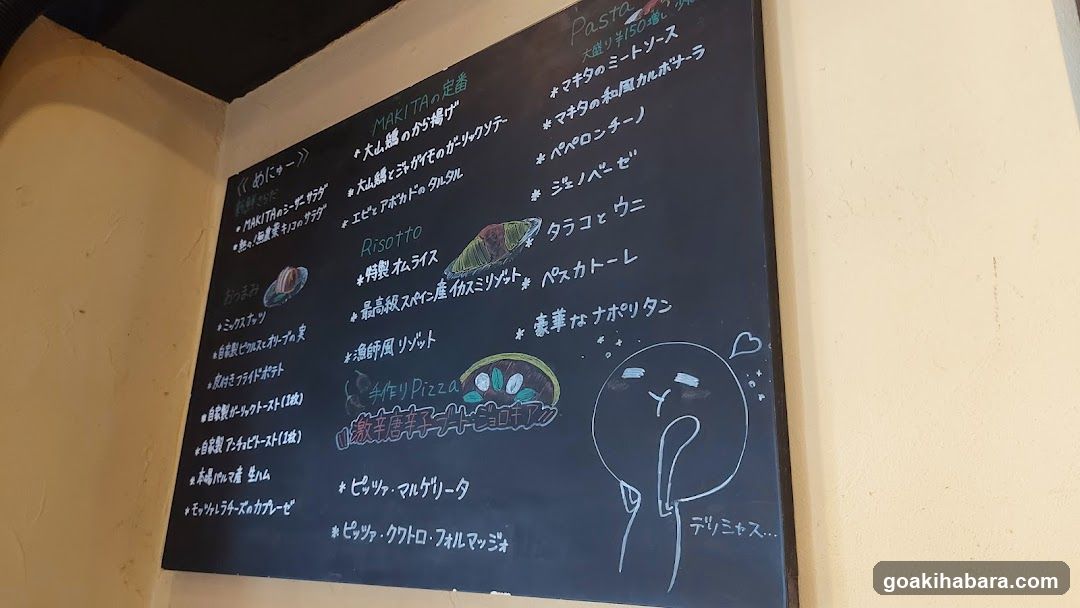 《めにゅー》
* MAKITAのシーザーサラダ
* 熱々!無農薬キノコのサラダ
おつまみ
* ミックスナッツ
* 自家製ピクルスとオリーブの実
* 皮付きフライドポテト
* 自家製ガーリックトースト(1枚)
* 自家製アンチョビトースト(1枚)
* 本場パルマ産 生ハム
* モッツァレラチーズのカプレーゼ
MAKITAの定番
* 大山鶏のから揚げ
* 大山鶏とジャガイモのガーリックソテー
* エビとアボカドのタルタル
Risotto
* 特製オムライス
* 最高級スペイン産イカスミリゾット
* 漁師風リゾット
手作りPizza
激辛唐辛子ブート・ジョロキア
* ピッツァ・マルゲリータ
* ピッツァ・クワトロ・フォルマッジォ
Pasta
大盛り¥150増し
* マキタのミートソース
* マキタの和風カルボナーラ
* ペペロンチーノ
* ジェノベーゼ
* タラコとウニ
* ペスカトーレ
* 豪華なナポリタン
デリシャス...
goakihabara.com